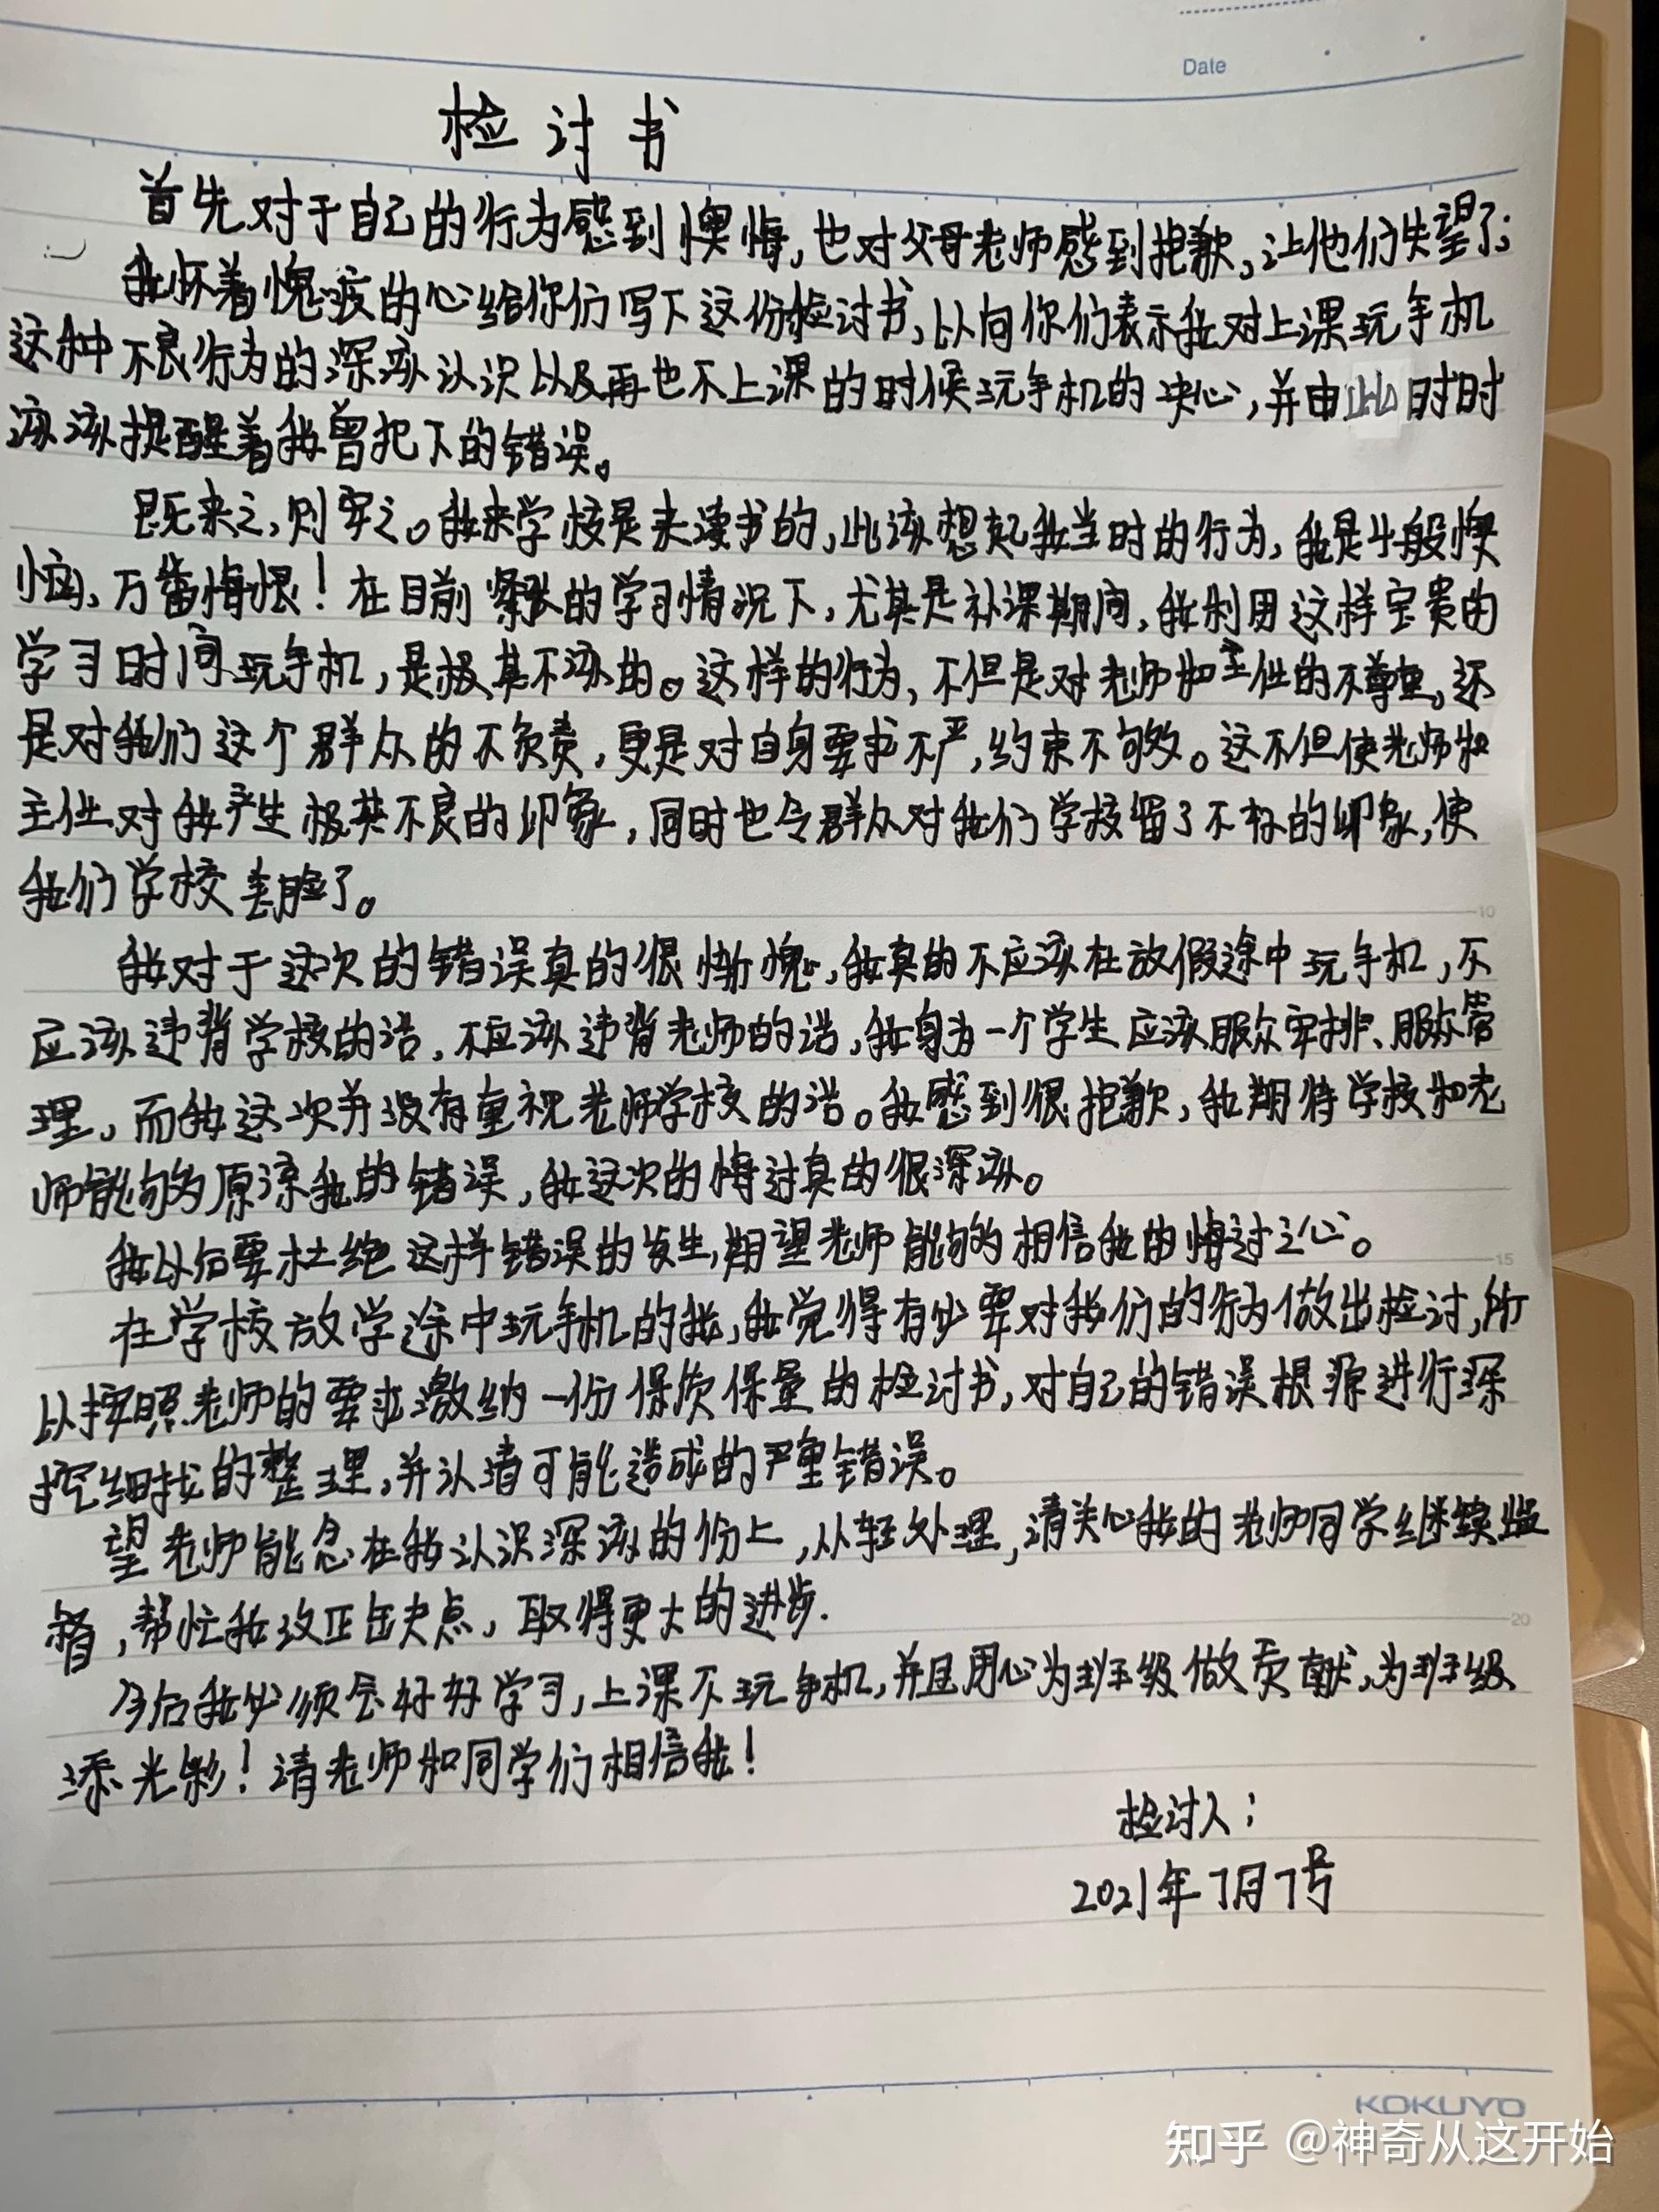 Date
检讨书
首先对于自己的行为感到懊悔,也对父母老师感到抱歉,让他们失望了;
我怀着愧疚的心给你们写下这份检讨书,以向你们表示我对上课玩手机
这种不良行为的深刻认识以及再也不上课的时候玩手机的决心,并由此时时
刻刻提醒着我曾犯下的错误。
既来之,则安之。我来学校是来读书的,此刻想起我当时的行为,我是十般懊
恼、万番悔恨!在目前紧张的学习情况下,尤其是补课期间,我利用这样宝贵的
学习时间玩手机,是极其不该的。这样的行为,不但是对老师和主任的不尊重,还
是对我们这个群众的不负责,更是对自身要求不严,约束不够。这不但使老师和
主任对我产生极其不良的印象,同时也令群众对我们学校留了不好的印象,使
我们学校丢脸了。
我对于这次的错误真的很惭愧,我真的不应该在放假途中玩手机,不
应该违背学校的话,不应该违背老师的话,我身为一个学生应该服众安排、服众管
理,而我这次并没有重视老师学校的话。我感到很抱歉,我期待学校和老
师能够原谅我的错误,我这次的悔过真的很深刻。
我以后要杜绝这样错误的发生,期望老师能够相信我的悔过之心。
在学校放学途中玩手机的我,我觉得有必要对我们的行为做出检讨,所
以按照老师的要求激纳一份保质保量的检讨书,对自己的错误根源进行深
挖细找的整理,并认清可能造成的严重错误。
望老师能念在我认识深刻的份上,从轻处理,请关心我的老师同学继续监
督,帮忙我改正缺点,取得更大的进步.
今后我必须会好好学习,上课不玩手机,并且用心为班级做贡献,为班级
添光彩!请老师和同学们相信我!
检讨人:
2021年7月7号
10
15
20
KOKUYO
知乎 @神奇从这开始